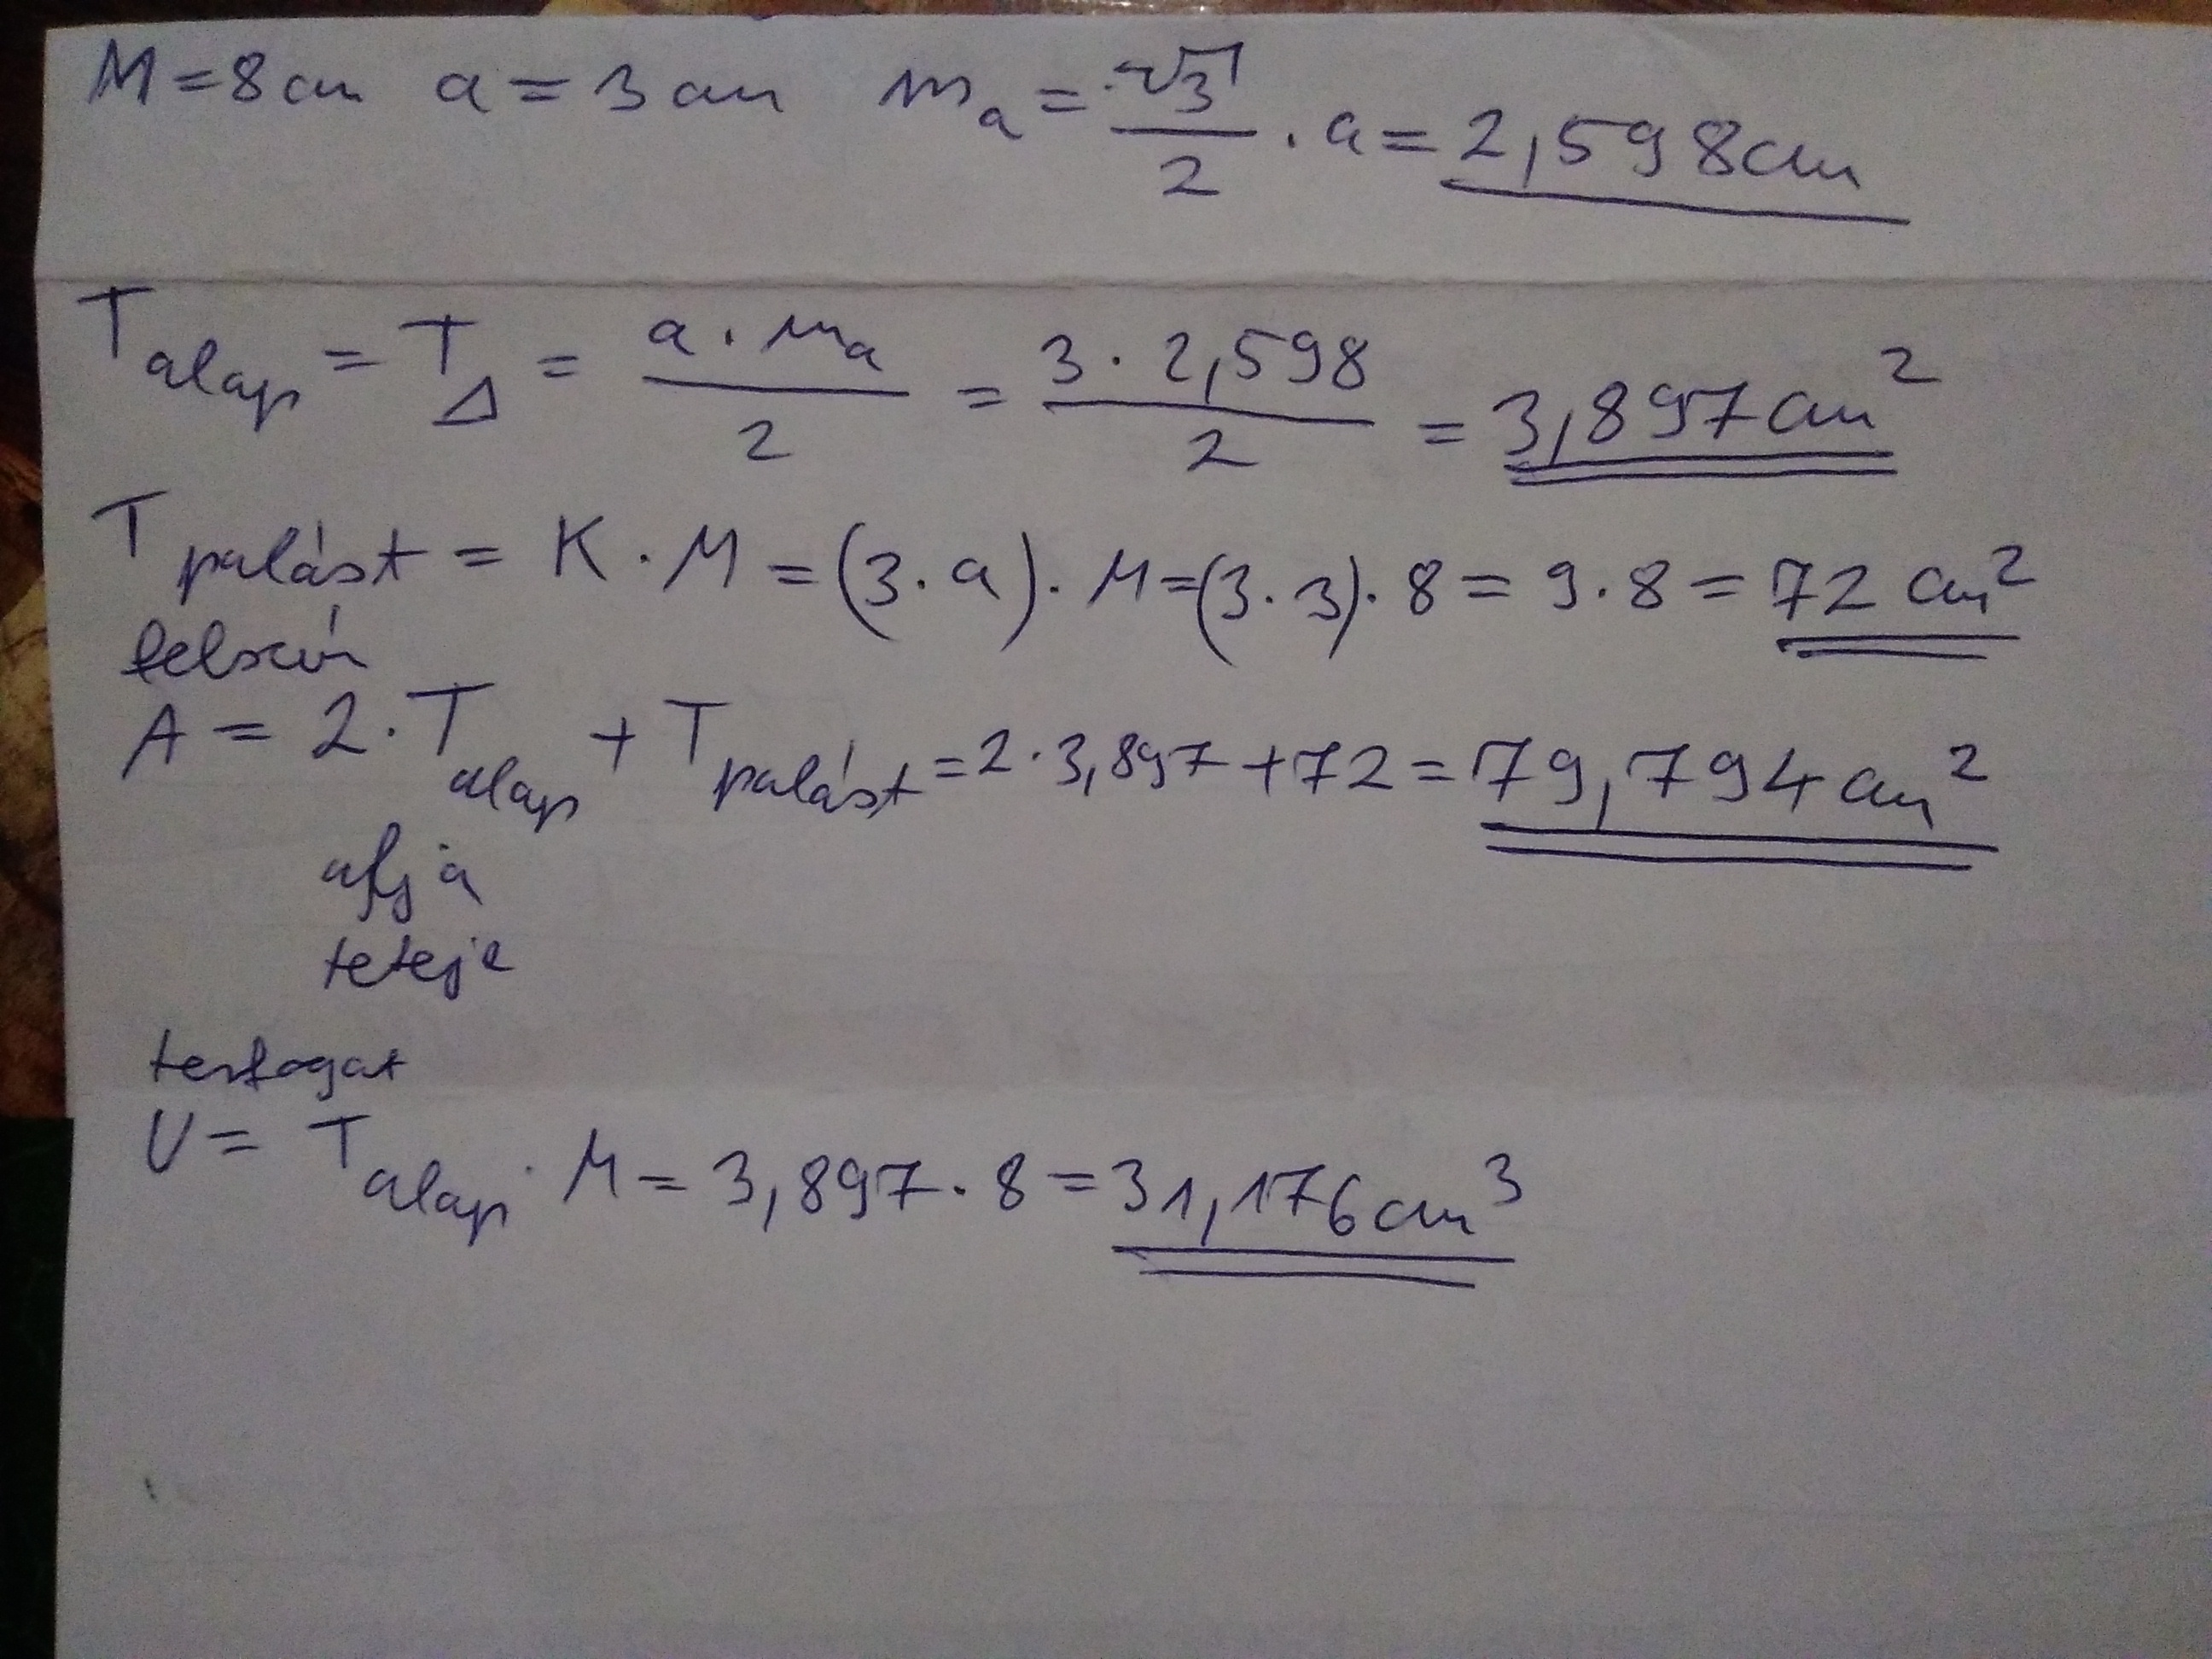 M = 8 cm a = 3 cm m_a = √3/2 · a = 2,598 cm
T_alap = T_Δ = a · m_a / 2 = 3 · 2,598 / 2 = 3,897 cm²
T_palást = K · M = (3 · a) · M = (3 · 3) · 8 = 9 · 8 = 72 cm²
felszín
A = 2 · T_alap + T_palást = 2 · 3,897 + 72 = 79,794 cm²
alja
teteje
térfogat
V = T_alap · M = 3,897 · 8 = 31,176 cm³